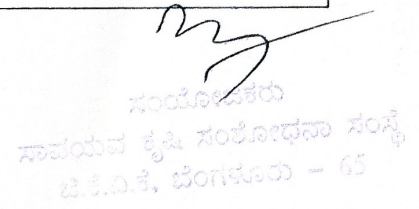 ಸಂಯೋಜಕರು
ಸಾವಯವ ಕೃಷಿ ಸಂಶೋಧನಾ ಸಂಸ್ಥೆ
ಜಿ.ಕೆ.ವಿ.ಕೆ, ಬೆಂಗಳೂರು - 65